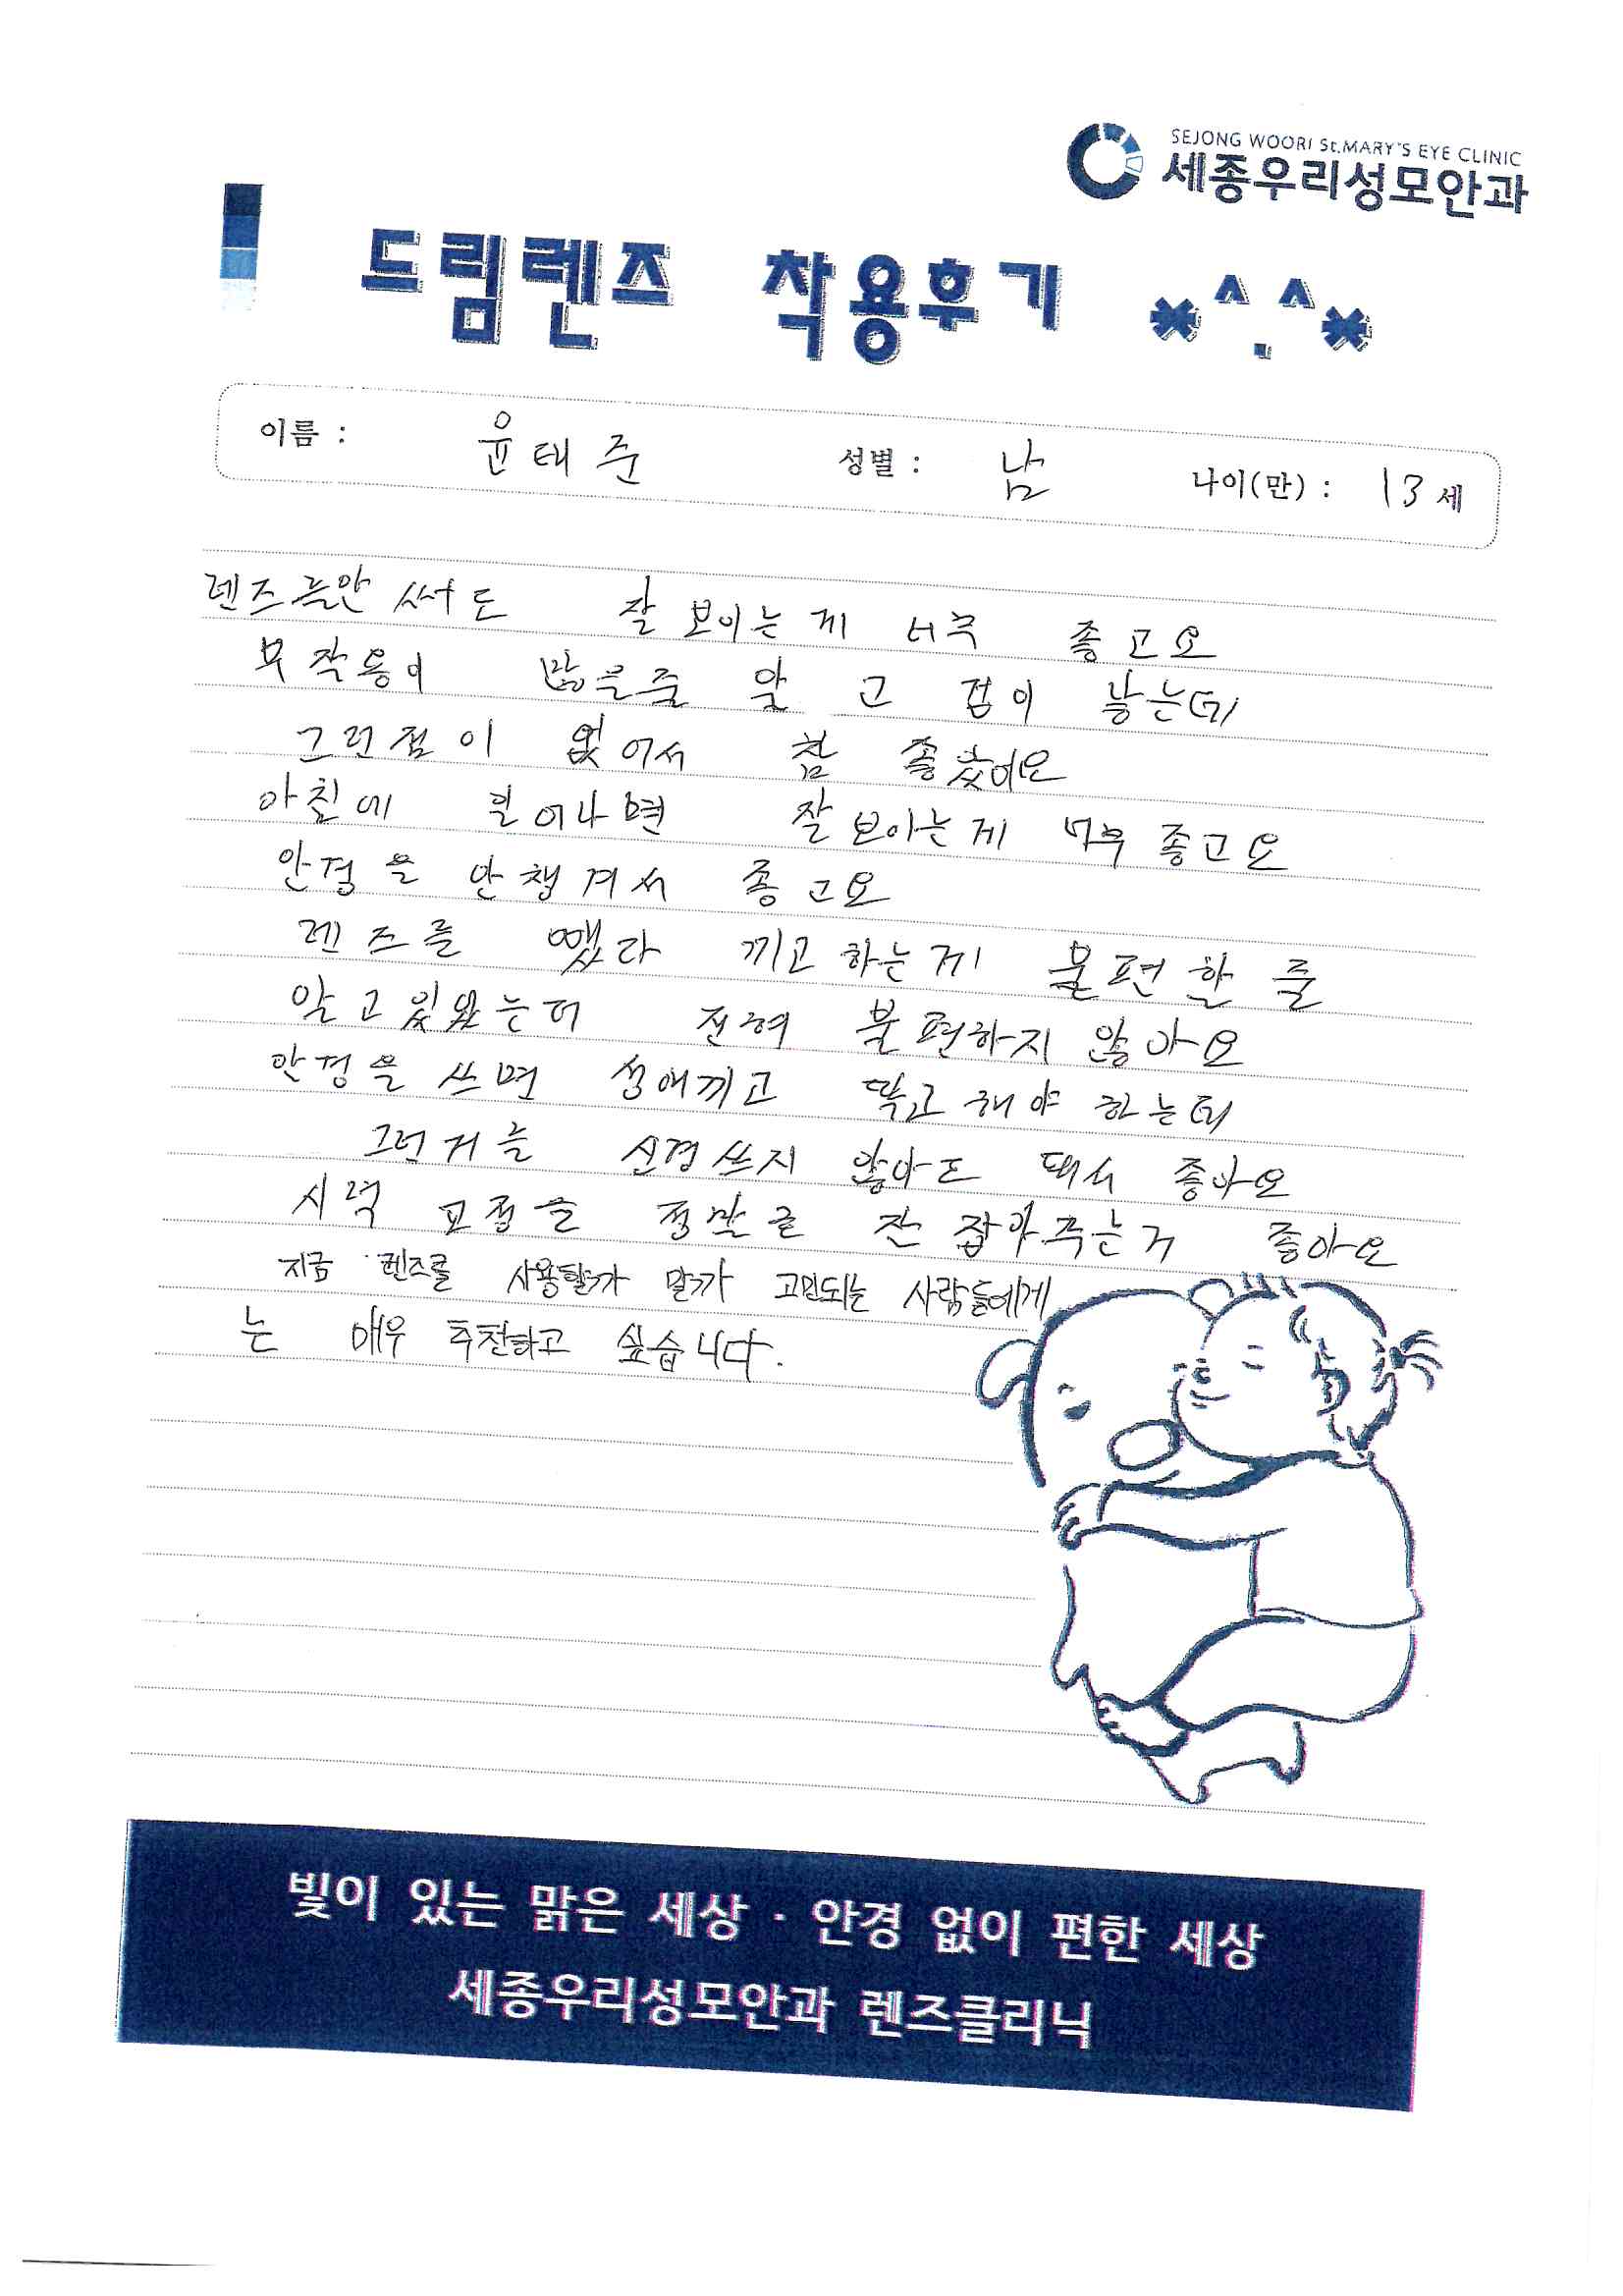 SEJONG WOORI St.MARY'S EYE CLINIC
세종우리성모안과
드림렌즈 착용후기 *^.^*
이름 : 윤태준 성별 : 남 나이(만) : 13 세
렌즈를안 써도 잘 보이는게 너무 좋고요
부작용이 많을줄 알고 겁이 났는데
그런점이 없어서 참 좋았어요
아침에 일어나면 잘보이는게 너무 좋고요
안경을 안챙겨서 좋고요
렌즈를 뺐다 끼고하는게 불편할 줄
알고있었는데 전혀 불편하지 않아요
안경을 쓰면 성애끼고 딱고해야 하는데
그런거를 신경쓰지 않아도 돼서 좋아요
시력 교정을 정말로 잘 잡아주는거 좋아요
지금 렌즈를 사용할까 말까 고민되는 사람들에게
는 매우 추천하고 싶습니다.
빛이 있는 맑은 세상 · 안경 없이 편한 세상
세종우리성모안과 렌즈클리닉